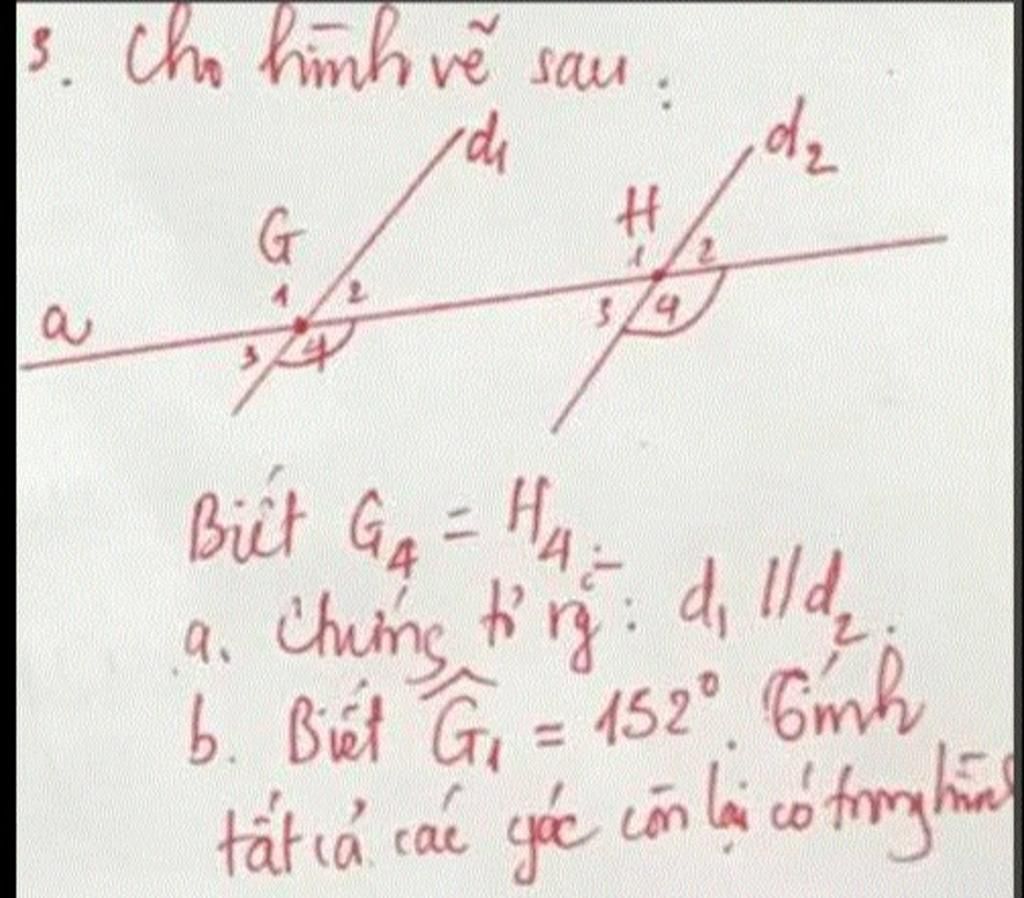 3. Cho hình vẽ sau:
d1
d2
G
H
1
2
1
2
a
3
4
3
4
Biết G4 = H4.
a. Chứng tỏ rg̀: d1 // d2.
b. Biết Ĝ1 = 152°. Tính
tất cả các góc còn lại có trong hình